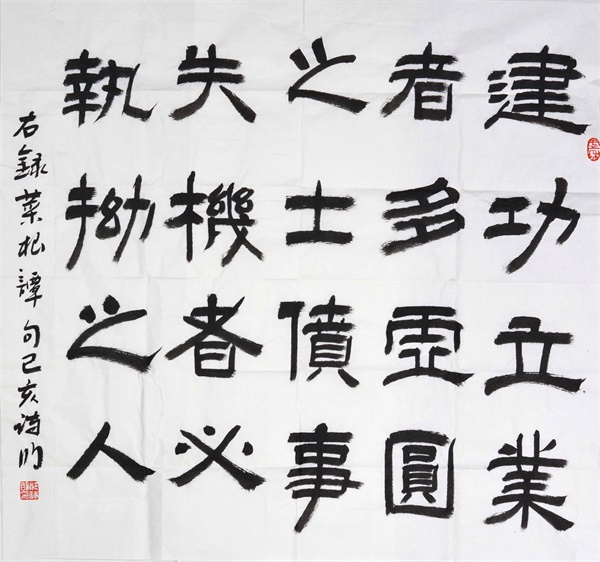 建功立業
者多虛圓
之士僨事
失機者必
執拗之人
右録菜根譚句己亥诗